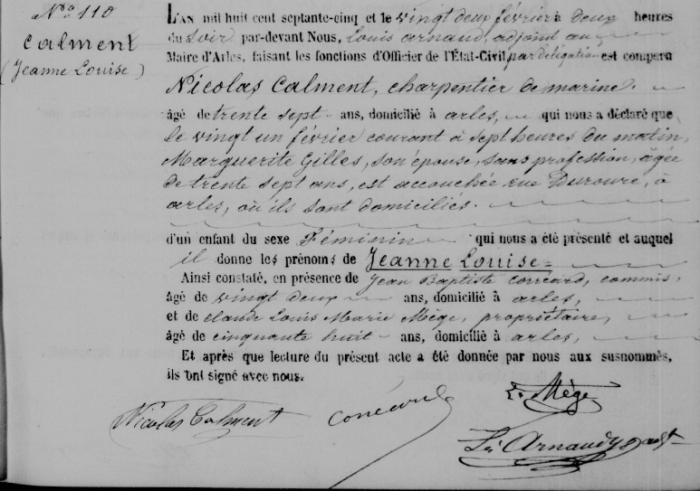 No 110
Calment
(Jeanne Louise)
L'AN mil huit cent septante-cinq et le vingt deux février à deux heures
du soir par-devant Nous, Louis arnaud, adjoint au
Maire d'Arles, faisant les fonctions d'Officier de l'État-Civil par délégation est comparu
Nicolas Calment, charpentier de marine.
âgé de trente sept ans, domicilié à arles, qui nous a déclaré que
le vingt un février courant à sept heures du matin,
Marguerite Gilles, son épouse, sans profession, âgée
de trente sept ans, est accouchée rue Duroure, à
arles, où ils sont domiciliés.
d'un enfant du sexe Féminin qui nous a été présenté et auquel
il donne les prénoms de Jeanne Louise
Ainsi constaté, en présence de Jean Baptiste conéard, commis,
âgé de vingt deux ans, domicilié à arles,
et de claude Louis Marie Mège, propriétaire,
âgé de cinquante huit ans, domicilié à arles,
Et après que lecture du présent acte a été donnée par nous aux susnommés,
ils ont signé avec nous.
Mège
Nicolas Calment conéard
Arnaud